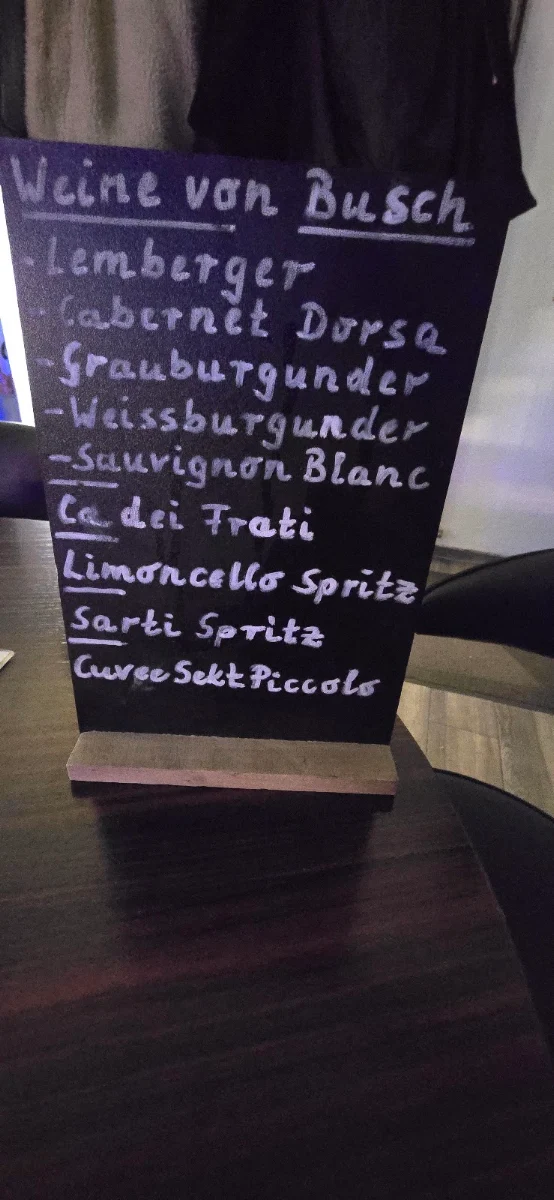 Weine von Busch
- Lemberger
- Cabernet Dorsa
- Grauburgunder
- Weissburgunder
- Sauvignon Blanc
Ca dei Frati
Limoncello Spritz
Sarti Spritz
Cuvee Sekt Piccolo